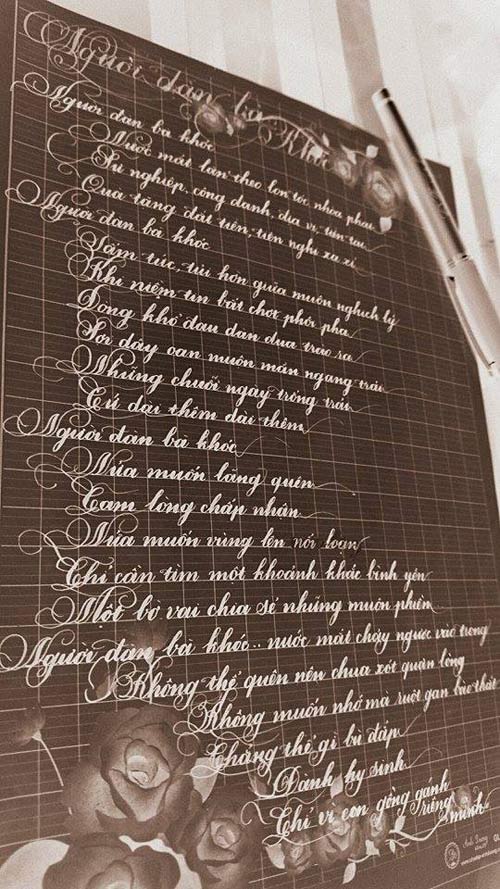 Người đàn bà Khóc
Người đàn bà khóc
Nước mắt lăn theo lọn tóc nhựa phai
Sự nghiệp, công danh, địa vị, tiền tài
Quà tặng đắt tiền, tiện nghi xa xỉ
Người đàn bà khóc
Sấm tức, tủi hờn giữa muôn nghịch lý
Khi niệm tin bất chợt phôi pha
Sóng khổ đau đan đưa trào ra
Sợi dây oan muôn màn ngang trái
Những chuỗi ngày trống trải
Cứ dài thêm dài thêm
Người đàn bà khóc
Nửa muốn lãng quên
Cam lòng chấp nhận
Nửa muốn vùng lên nổi loạn
Chỉ cần tìm một khoảnh khắc bình yên
Một bờ vai chia sẻ những muộn phiền
Người đàn bà khóc.. nước mắt chảy ngược vào trong
Không thể quên nên chua xót quặn lòng
Không muốn nhớ mà ruột gan thắt
Chẳng thể gì bù đắp
Đành hy sinh
Chỉ vì con gồng gánh
riêng mình